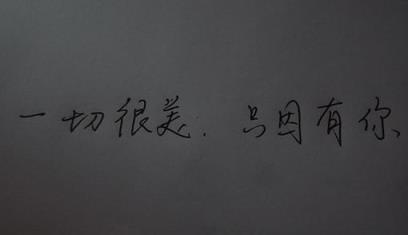 一切很美. 只因有你